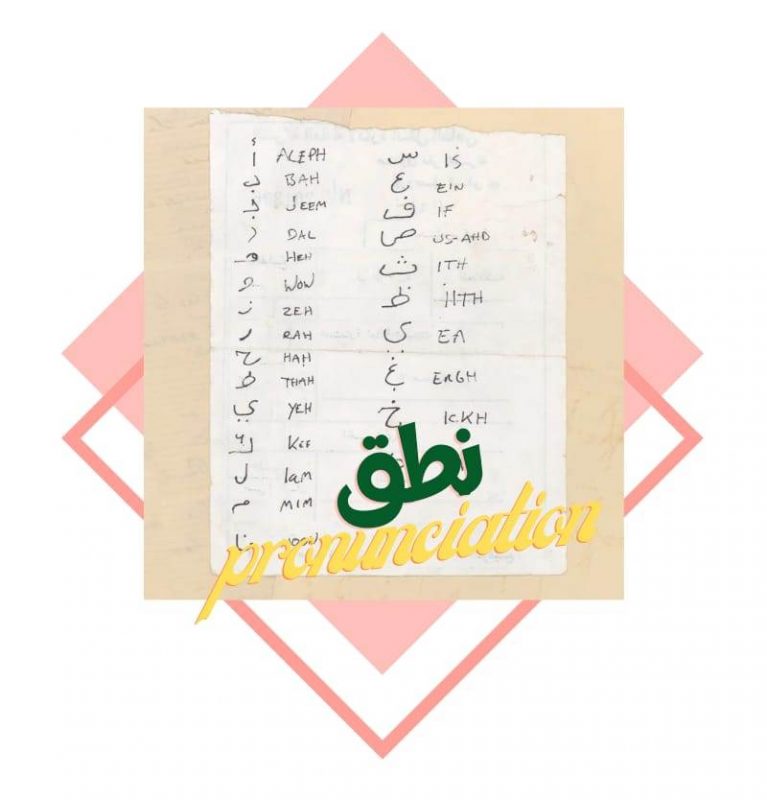 أ ALEPH
ب BAH
ج JEEM
د DAL
هـ HEH
و WOW
ز ZEH
ر RAH
ح HAH
ط THAH
ي YEH
ك KEF
ل lam
م MIM
س IS
ع EIN
ف IF
ص US-AHD
ث ITH
ظ
ي EA
غ ERGH
خ ICKH
نطق
pronunciation